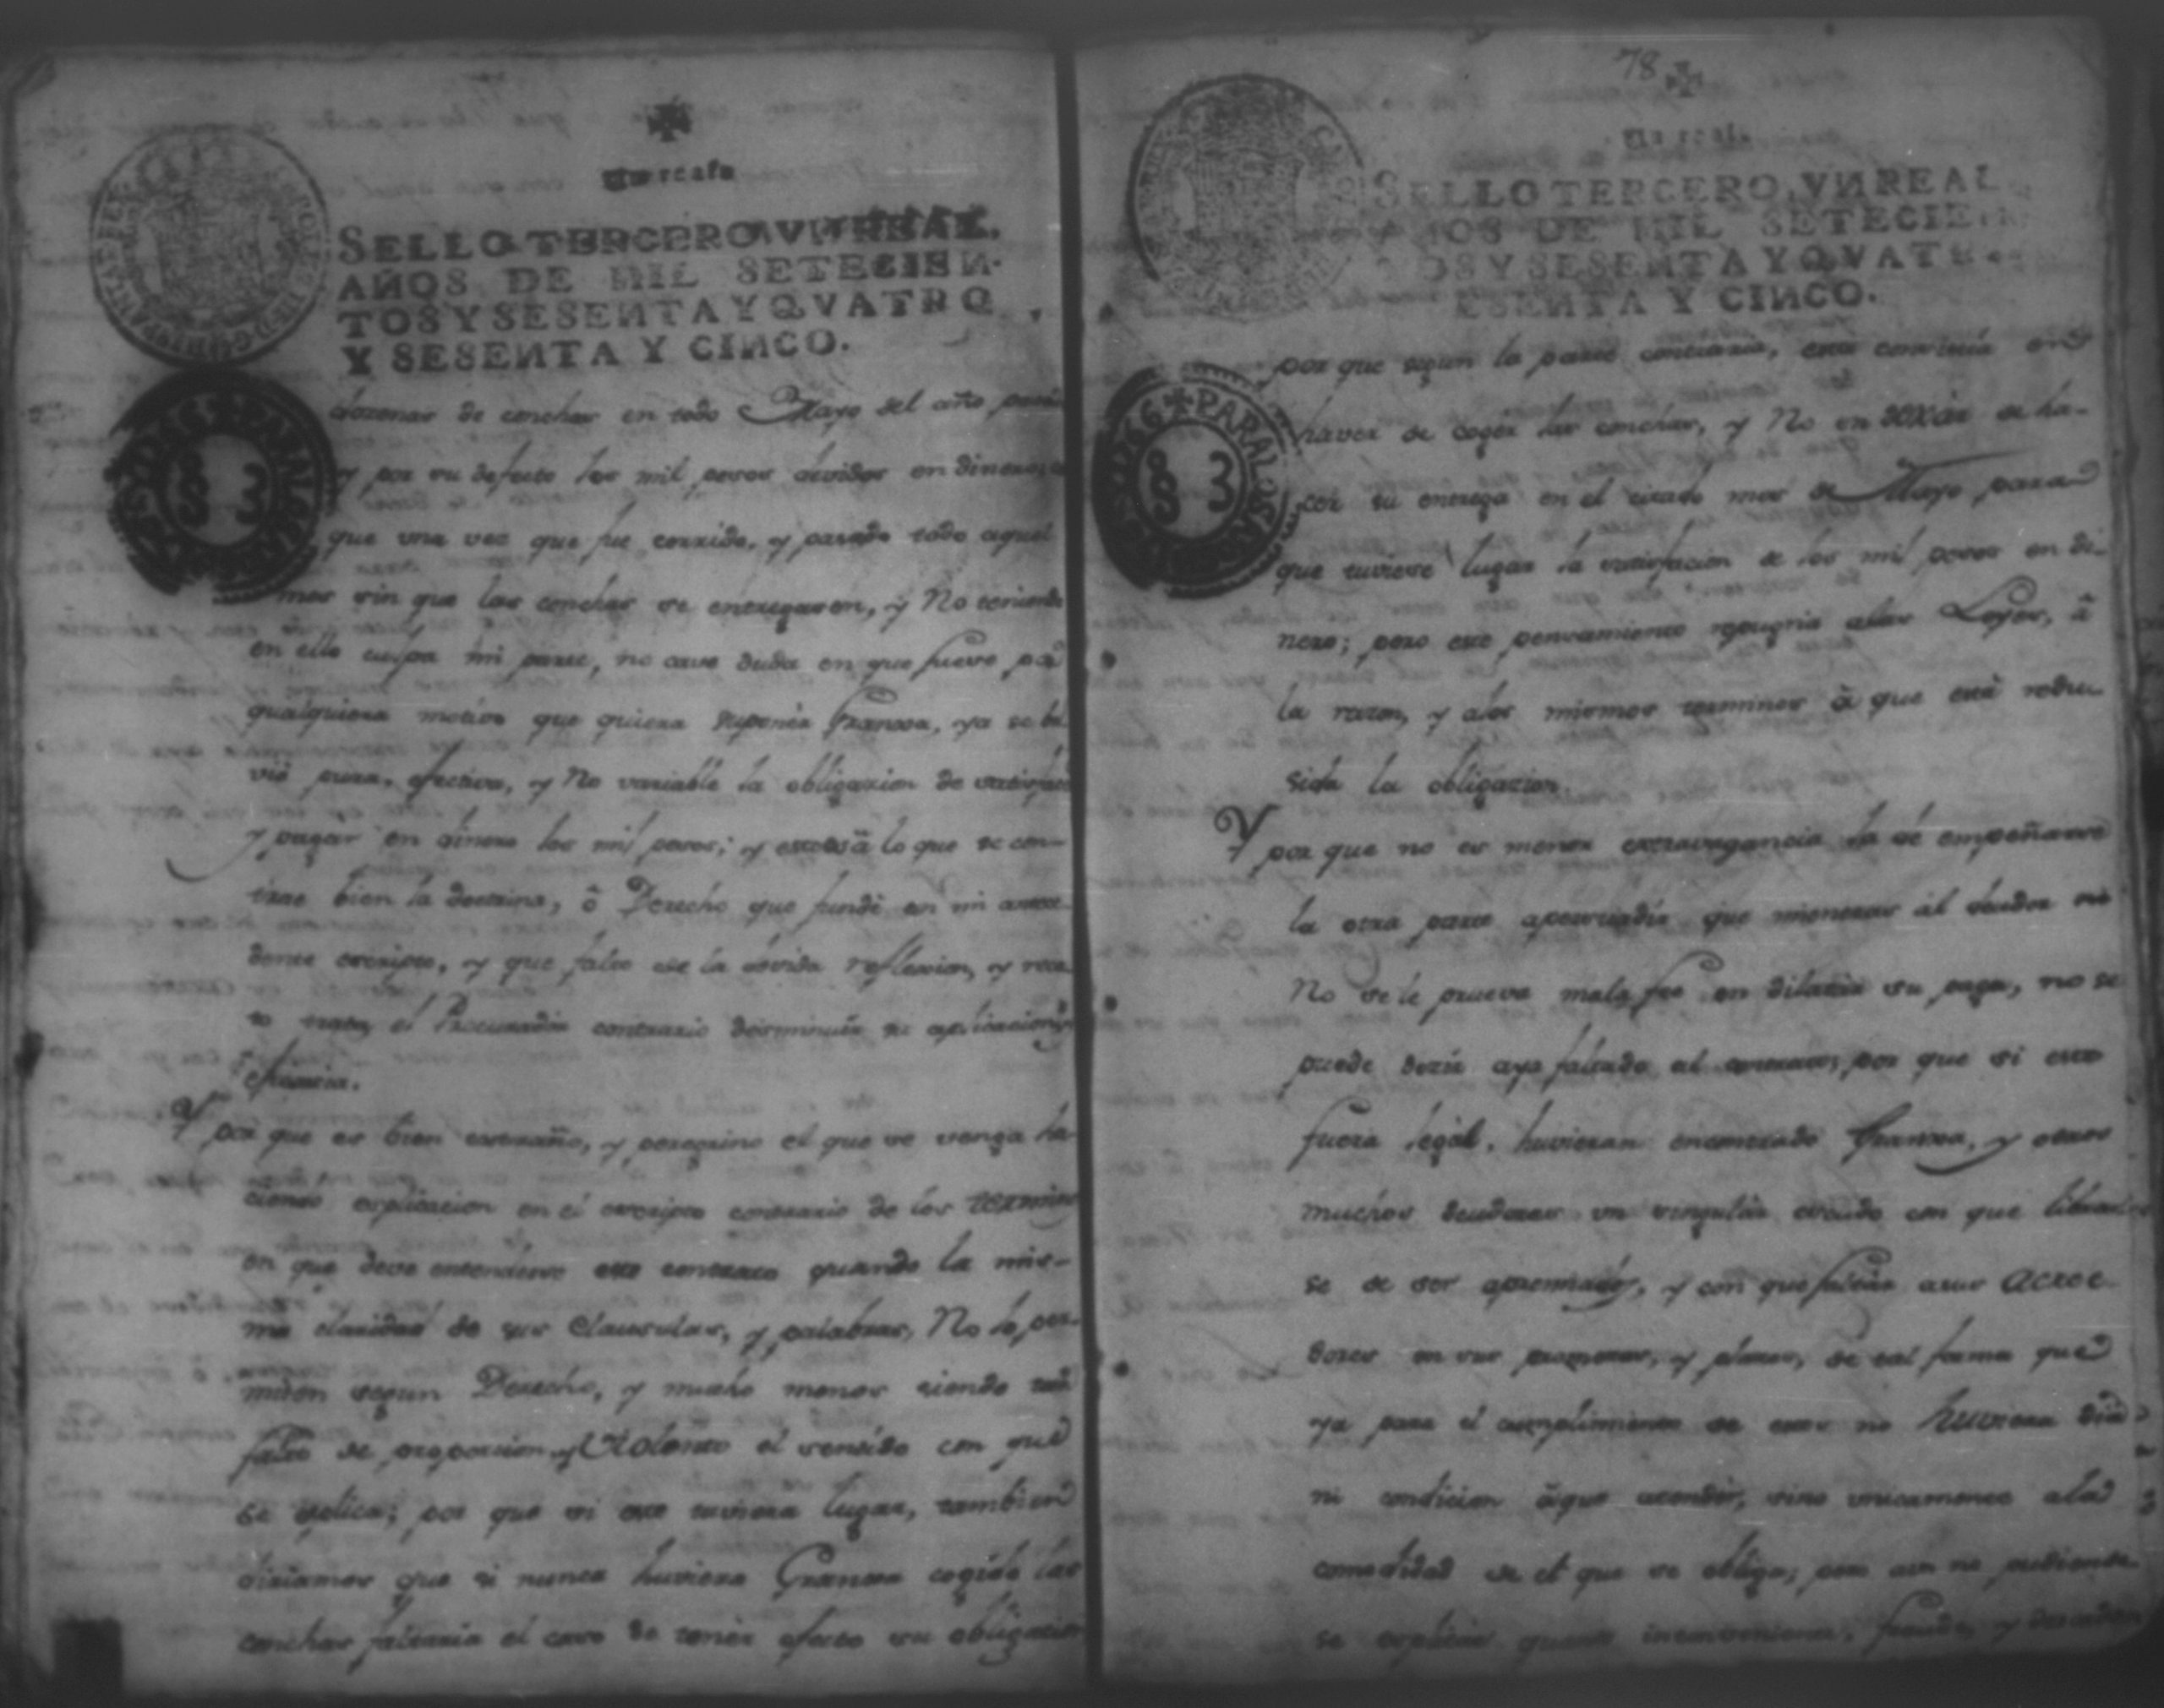 Un real
SELLO TERCERO, VN REAL.
AÑOS DE MIL SETECIEN-
TOS Y SESENTA Y QVATRO
Y SESENTA Y CINCO.
dozenas de conchas en todo Mayo del año
y por su defecto los mil pesos devidos en dinero,
que una vez que fue corrido, y pasado todo aquel
mes sin que las conchas se entregaron, y No teniendo
en ello culpa mi parte, no cave duda en que fuese por
qualquiera motivo que quiera suponer Franova, ya se bol
vió pura, efectiva, y No variable la obligazion de satisfacer
y pagar en dinero los mil pesos; y esto es ã lo que se con-
trae bien la doctrina, ô Derecho que fundé en mi antece-
dente escripto, y que falto de la devida reflexion, y
trata el Procurador contrario disminuir su aplicacion, y
eficazia.
Y por que es bien estraño, y peregrino el que se venga ha-
ciendo explicacion en el escripto contrario de los terminos
en que deve entenderse este contrato quando la mis-
ma claridad de sus Clausulas, y palabras, No lo per-
miten segun Derecho, y mucho menos siendo tan
falto de proporcion y Violento el sentido con que
se esplica; por que si esto tuviera lugar, tambien
diriamos que si nunca huviera Franova cogido las
conchas faltaria el caso de tener efecto su obligacion
78
Un real
SELLO TERCERO, VN REAL
AÑOS DE MIL SETECIEN
TOS Y SESENTA Y QVATRO
SESENTA Y CINCO.
PARA LOS A
§ 3
§ 3
por que segun la parte contraria, esta consistia en
haver de coger las conchas, y No en dexar de ha-
cer su entrega en el citado mes de Mayo para
que tuviese lugar la satisfacion de los mil pesos en di-
nero; pero este pensamiento repugna alas Leyes, â
la razon, y alos mismos terminos â que está redu-
sida la obligazion.
Y por que no es menor extravagancia la de empeñarse
la otra parte apersuadir que mientras al deudor
No se le prueva mala fee en dilatar su paga, no se
puede dezir aya faltado al contrato; por que si esto
fuera legal, huvieran encontrado Franova, y otros
muchos deudores un singular escudo con que librar
se de ser apremiados, y con que faltar asus Acree-
dores en sus promesas, y plazos, de tal forma que
ya para el cumplimiento de estos no huviera dia
ni condicion âque atender, sino unicamente ala
comodidad de el que se obligo; pero aun no pudiendo
se explicar quanto inconveniente, fraude, y